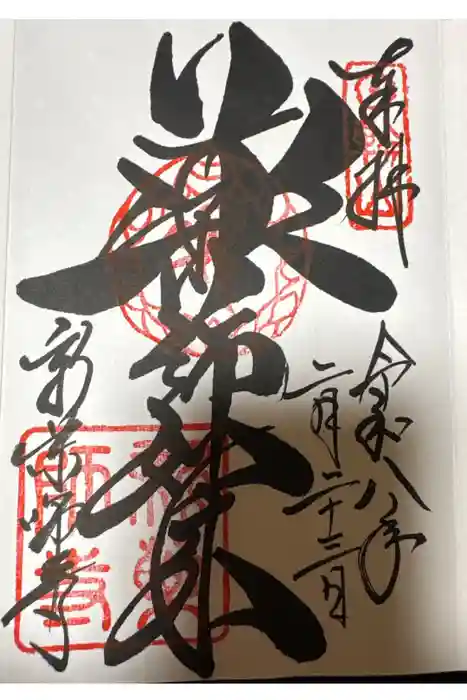 奉拝
令和八年
二月二十三日
薬師如来
新薬師寺